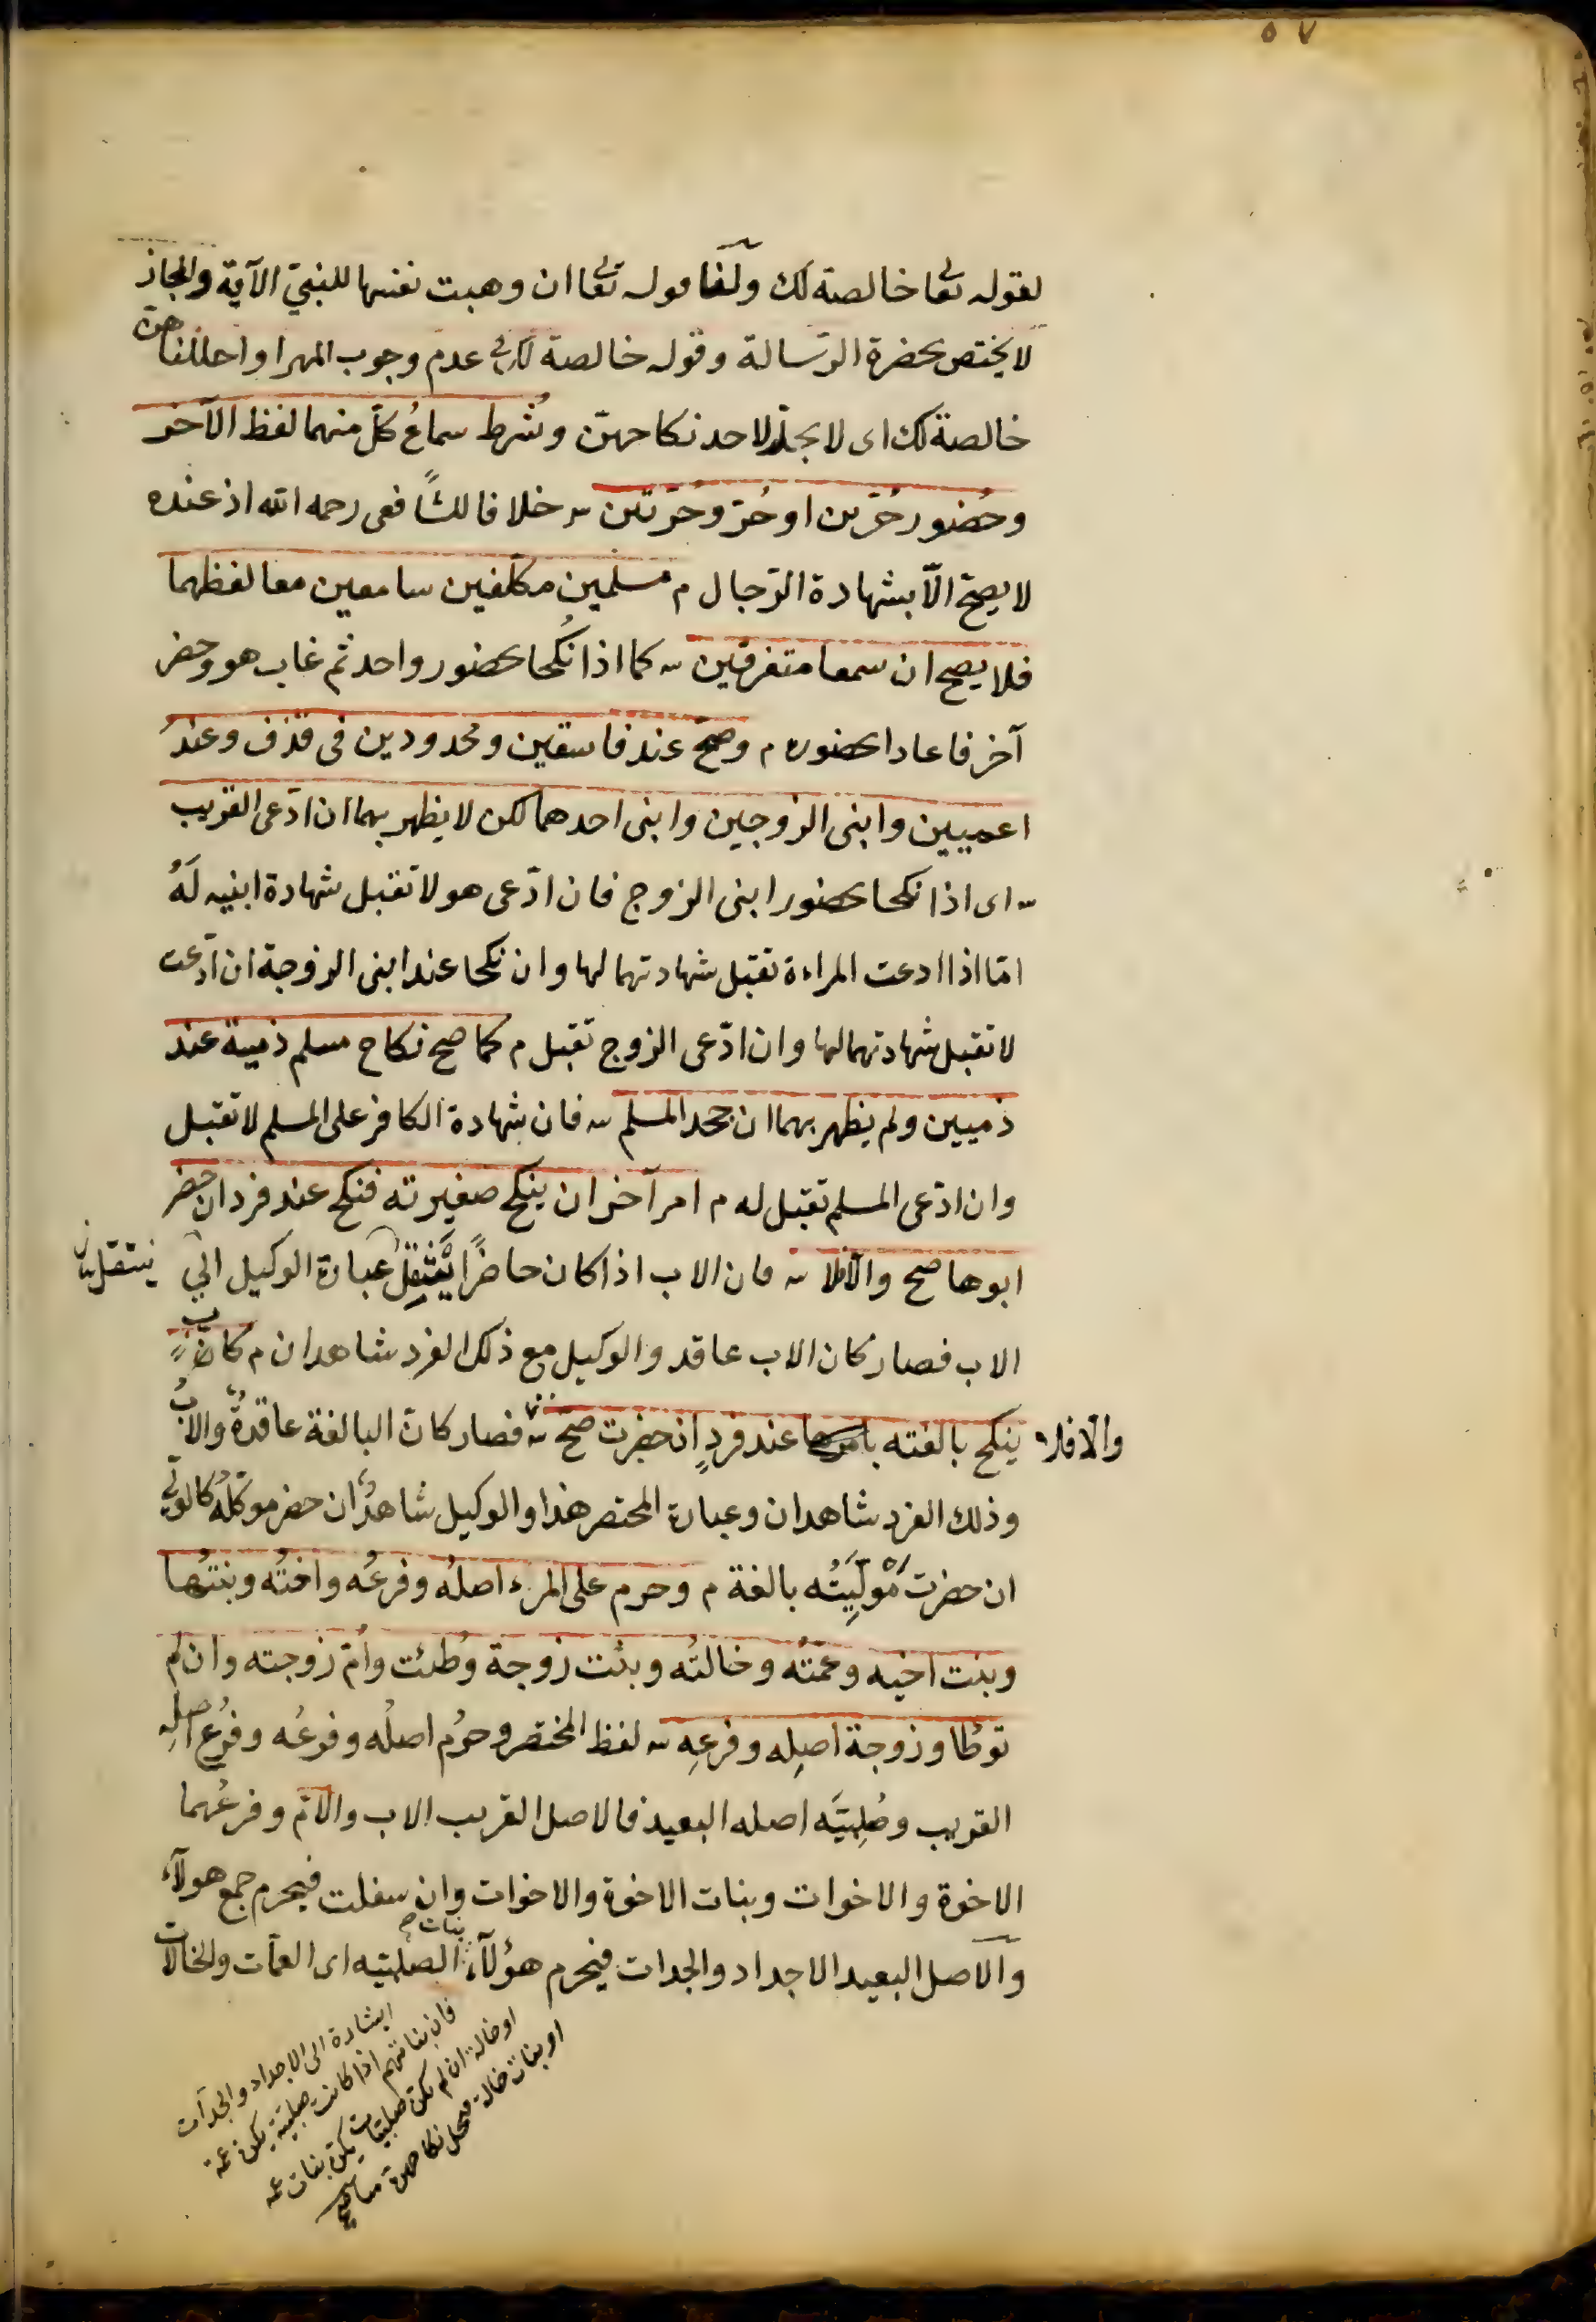 ٥٧
لقوله تعا خالصة لك ولنا قوله تعا ان وهبت نفسها للنبيّ الآية والمجاز
لا يختص بحضرة الرّسالة وقوله خالصة لك فى عدم وجوب المهر او احللنا هنّ
خالصة لك اى لا يحلّ لاحد نكاحهنّ وشُرط سماعُ كلّ منهما لفظ الآخر
وحُضور حُرّين او حُرّ وحُرّتين ش خلافا للشافعى رحمه الله اذ عنده
لا يصحّ الّا بشهادة الرّجال م مسلمين مكلّفين سامعين معا لفظهما
فلا يصح ان سمعا متفرقين ش كما اذا نكحا بحضور واحد ثم غاب هو وحضر
آخر فاعادا بحضوره م وصحّ عند فاسقين ومحدودين فى قذف وعند
اعميين وابنى الزوجين وابنى احدهما لكن لا يظهر بهما ان ادّعى القريب
ش اى اذا نكحا بحضور ابنى الزوج فان ادّعى هو لا تقبل شهادة ابنيه لَهُ
امّا اذا ادعت المراءة تقبل شهادتهما لها وان نكحا عند ابنى الزوجة ان ادّعت
لا تقبل شهادتهما لها وان ادّعى الزوج تقبل م كما صح نكاح مسلم ذمّية عند
ذمّيين ولم يظهر بهما ان جحد المسلم ش فان شهادة الكافر على المسلم لا تقبل
وان ادّعى المسلم تقبل له م امر آخر ان ينكح صغيرته فنكح عند فرد ان حضر
ابوها صح والّا فلا ش فان الاب اذا كان حاضرًا ينتقل عبارة الوكيل الى
الاب فصار كان الاب عاقد والوكيل مع ذلك الفرد شاهدان م كاب
والّا فلا ينكح بالغته بامرها عند فردٍ ان حضرت صحّ ش فصار كانّ البالغة عاقدةٌ والابُ
وذلك الفرد شاهدان وعبارة المختصر هذا والوكيل شاهدٌ ان حضر موكّلُه كالولىّ
ان حضرت مُوْلِيَتُه بالغة م وحرم على المرء اصلُه وفرعُه واختُه وبنتُها
وبنت اخيه وعمّتُه وخالتُه وبنْت زوجة وُطئت وامّ زوجته وان لم
توطأ وزوجة اصلِه وفرعِه ش لفظ المختصر وحرُم اصلُه وفرعُه وفرْع اصلِه
القريب وصُلبيّة اصله البعيد فالاصل القريب الاب والامّ وفرعُهما
الاخوة والاخوات وبنات الاخوة والاخوات وان سفلت فيحرم جمع هولآء
والاصل البعيد الاجداد والجدات فيحرم هؤلآء بنات الصلبيه اى العمّات والخالات
اشارة الى الاجداد والجدّات
فان بناتهم اذا كانت صلبيّة يكن عمة
او خالة ان لم يكن صلبيّات يكن بنات عمه
او بنات خالة يحل نكاحهن